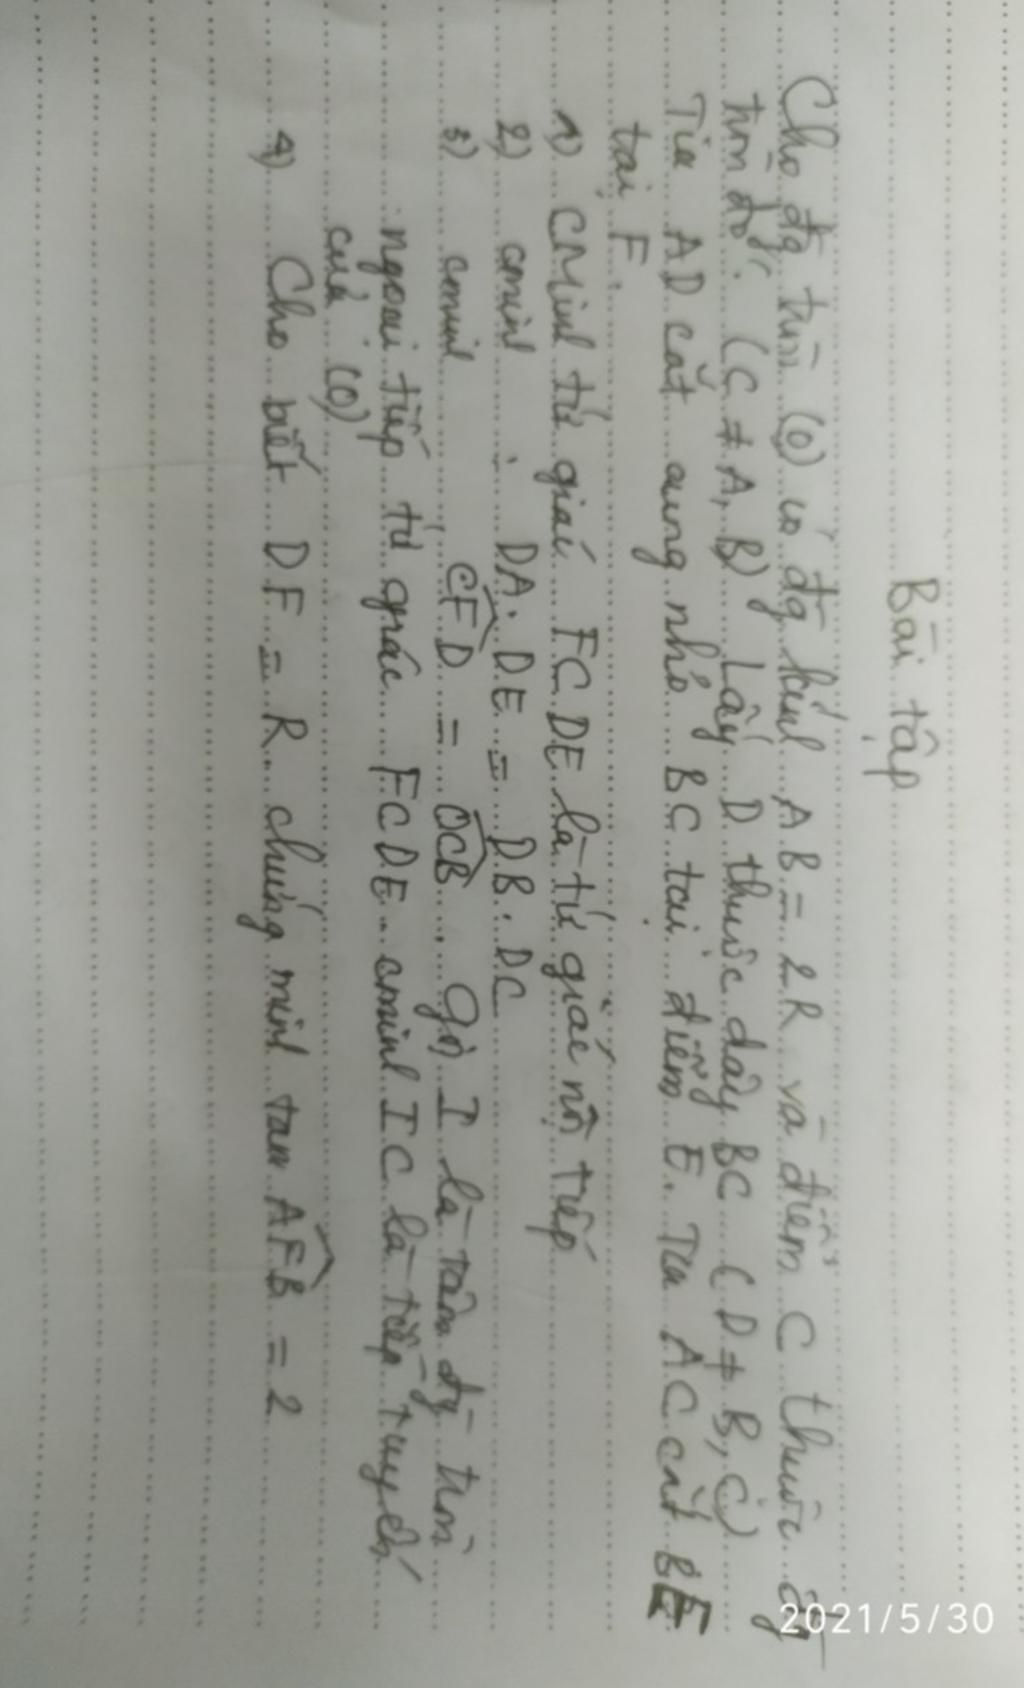 Bài tập
Cho đg tròn (O) có đg kính AB = 2R và điểm C thuộc đg
tròn đó. (C ≠ A, B) Lấy D thuộc dây BC (D ≠ B, C)
Tia AD cắt cung nhỏ BC tại điểm E. Tia AC cắt BE
tại F.
1) CMinh tứ giác FCDE là tứ giác nội tiếp
2) cminh : DA. DE = DB. DC
3) cminh CFD = OCB. Gọi I là tâm đg tròn
ngoại tiếp tứ giác FCDE. cminh IC là tiếp tuyến
của (O)
4) Cho biết DF = R. chứng minh tan AFB = 2
2021/5/30